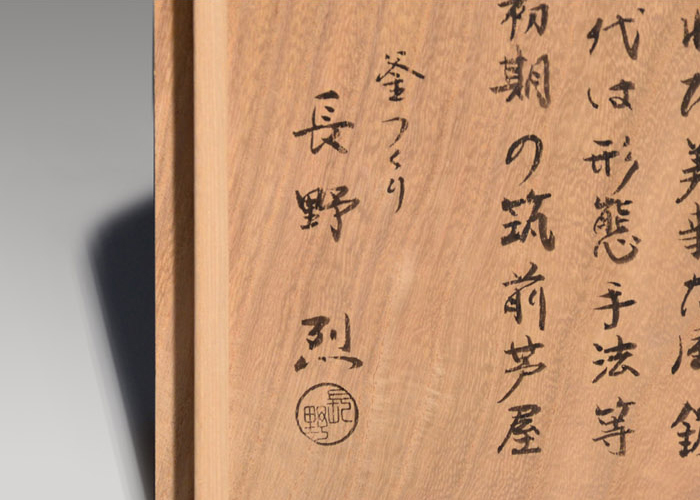 た美事な屋
代は形態手法等
初期の筑前芦屋
釜つくり
長野烈
長野